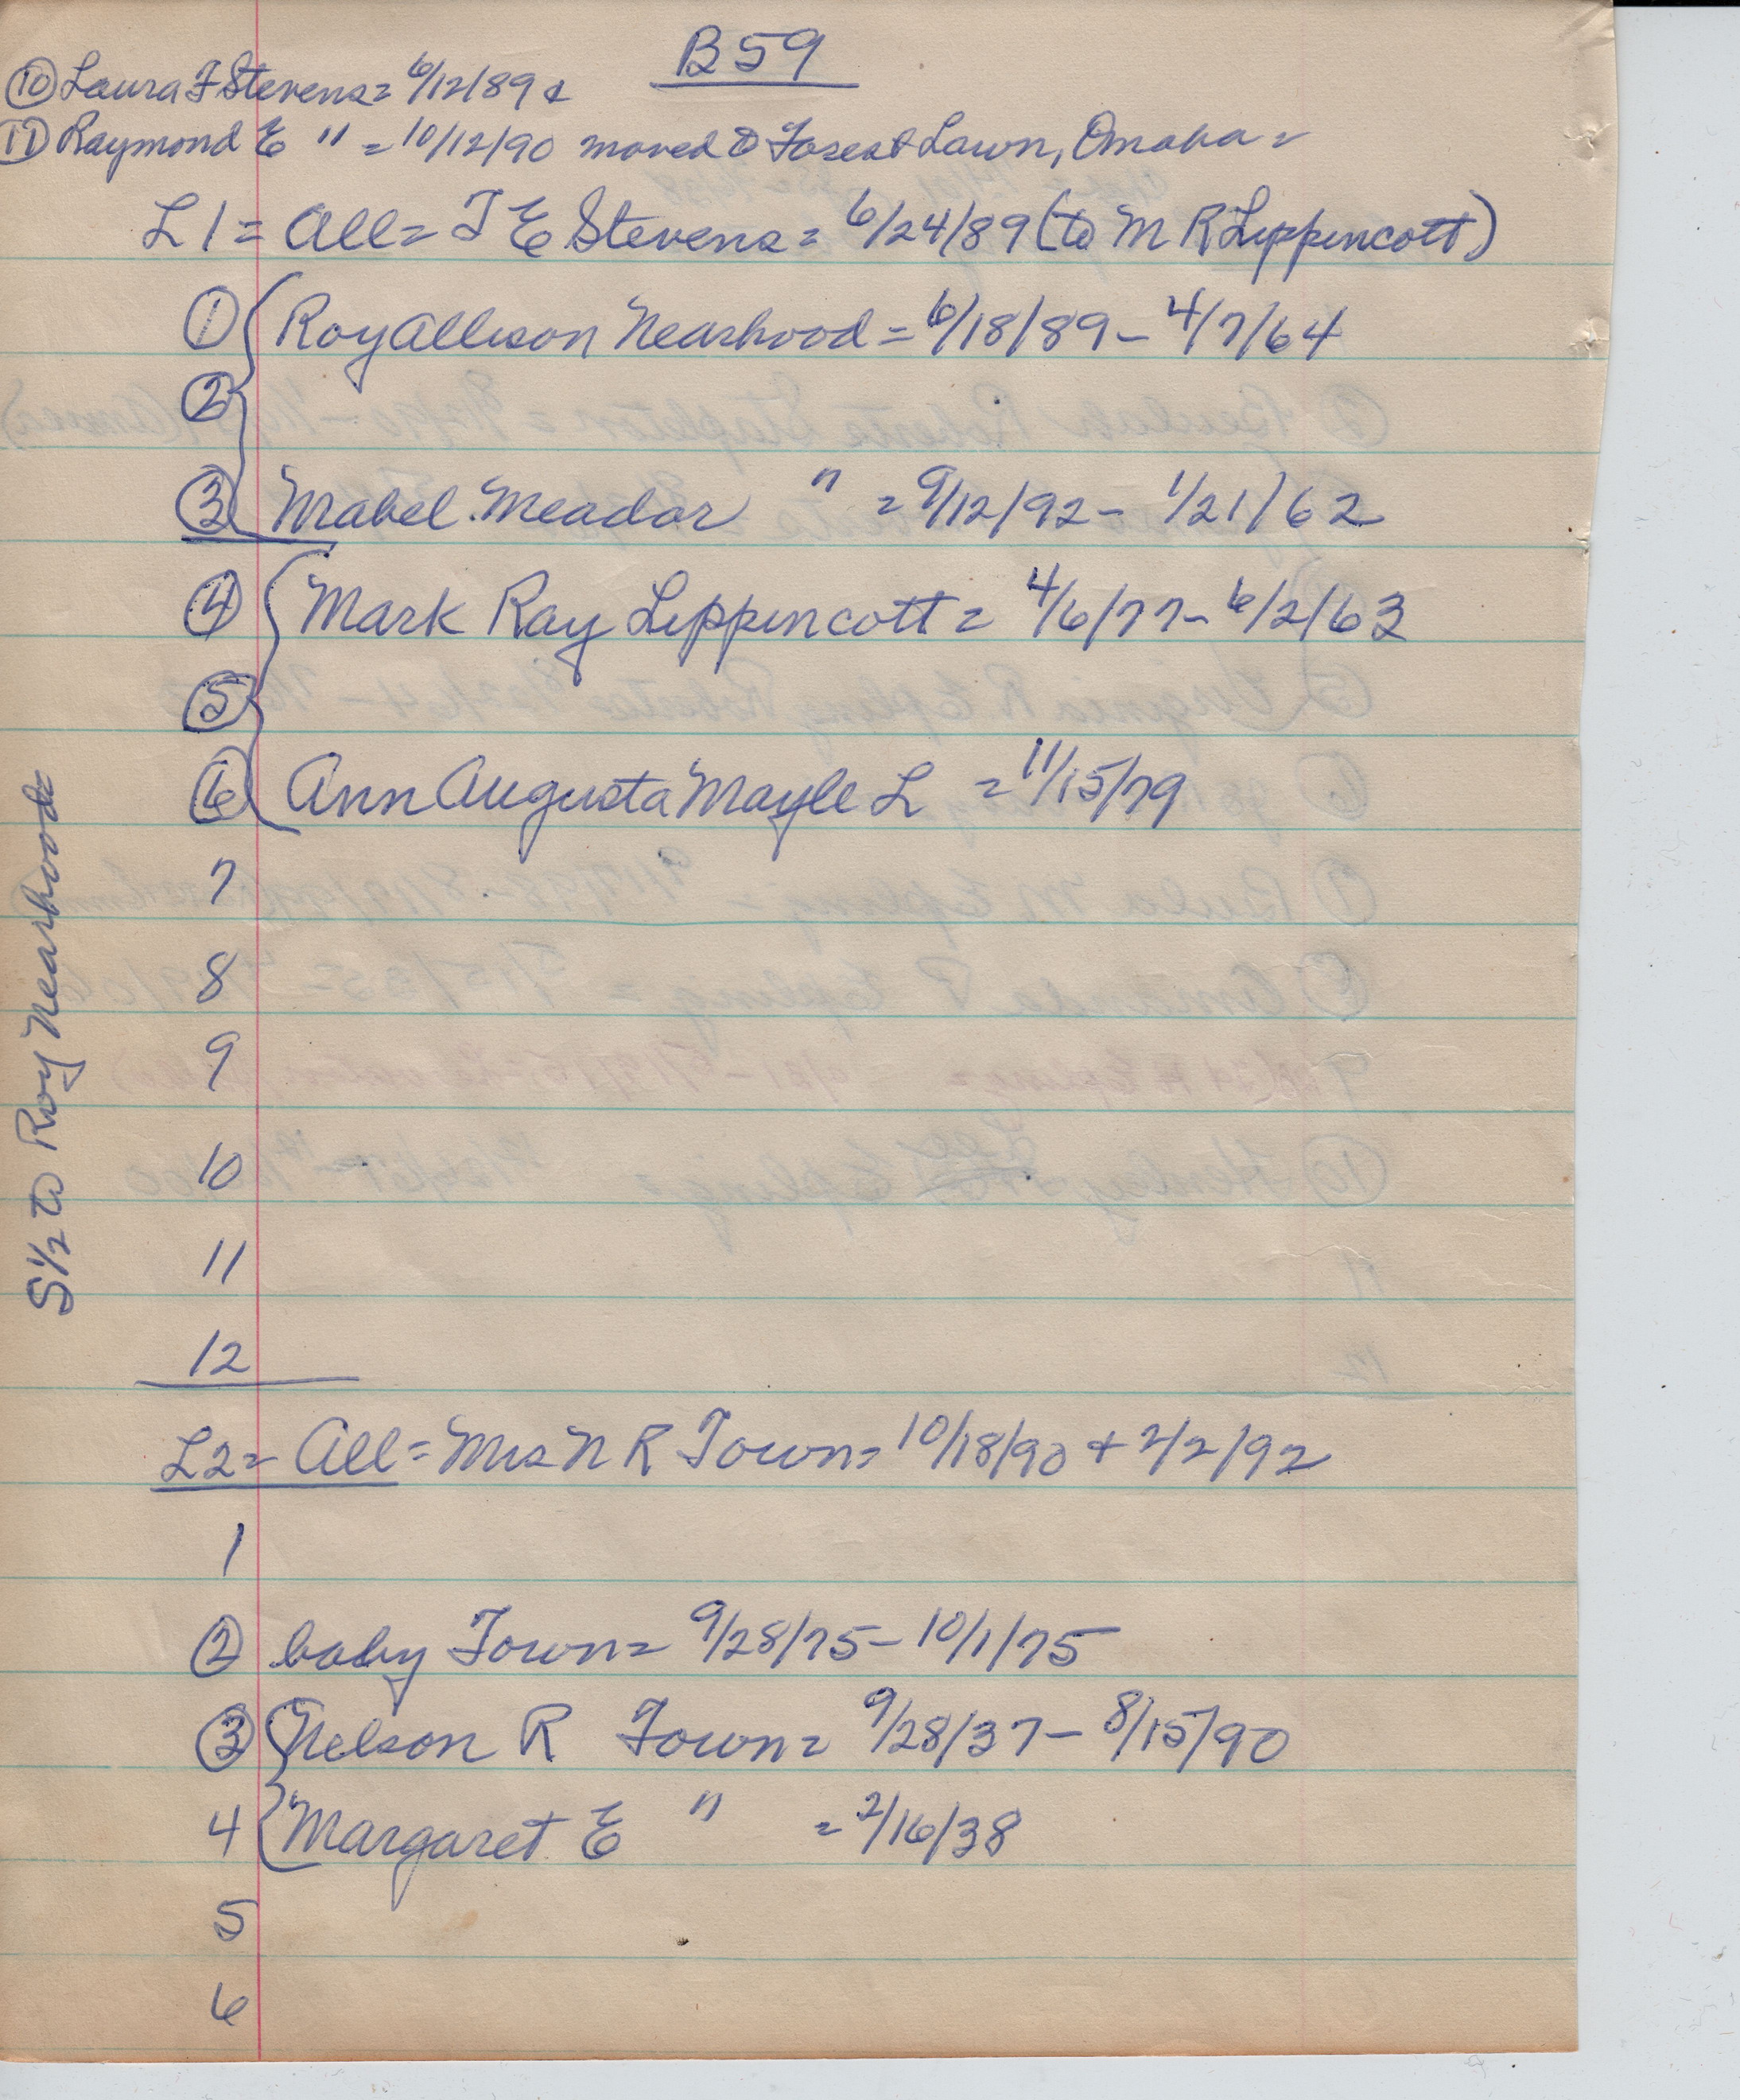 B59
⑩ Laura F Stevens = 6/12/89 &
⑪ Raymond E " = 10/12/90 moved to Forest Lawn, Omaha =
L1 = All = T E Stevens = 6/24/89 (to M R Lippincott)
① Roy Allison Nearhood = 6/18/89 - 4/7/64
②
③ Mabel Meador " = 9/12/92 - 1/21/62
④ Mark Ray Lippincott = 4/6/77 - 6/2/63
⑤
⑥ Ann Augusta Mayle L = 11/15/79
7
8
9
10
11
12
S 1/2 to Roy Nearhood
L2 = All = Mrs N R Town = 10/18/90 + 2/2/92
1
② baby Town = 9/28/75 - 10/1/75
③ Nelson R Town = 9/28/37 - 8/15/90
4 Margaret E " = 2/16/38
5
6